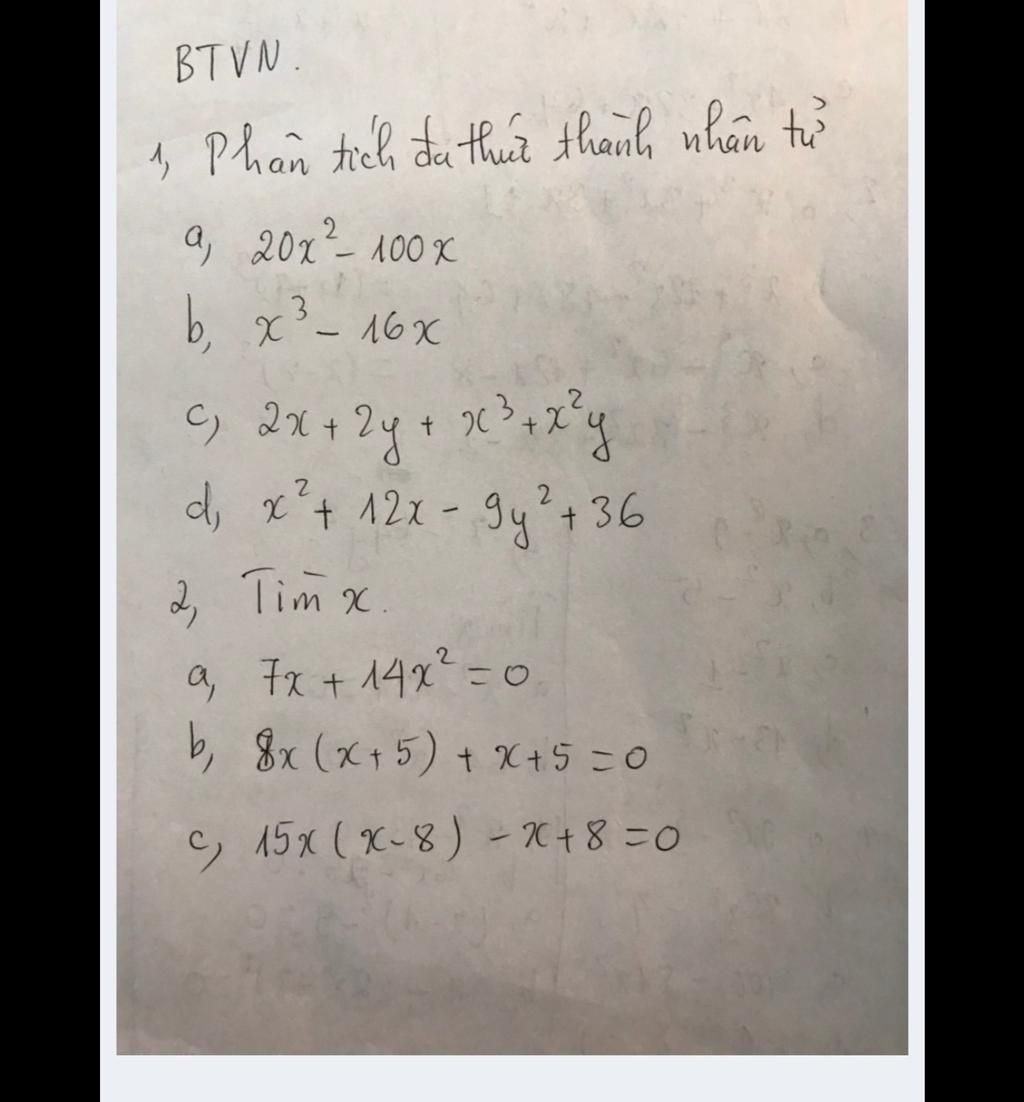 BTVN.
1, Phân tích đa thức thành nhân tử
a, 20x² - 100x
b, x³ - 16x
c, 2x + 2y + x³ + x²y
d, x² + 12x - 9y² + 36
2, Tìm x.
a, 7x + 14x² = 0
b, 8x (x + 5) + x + 5 = 0
c, 15x ( x - 8 ) - x + 8 = 0